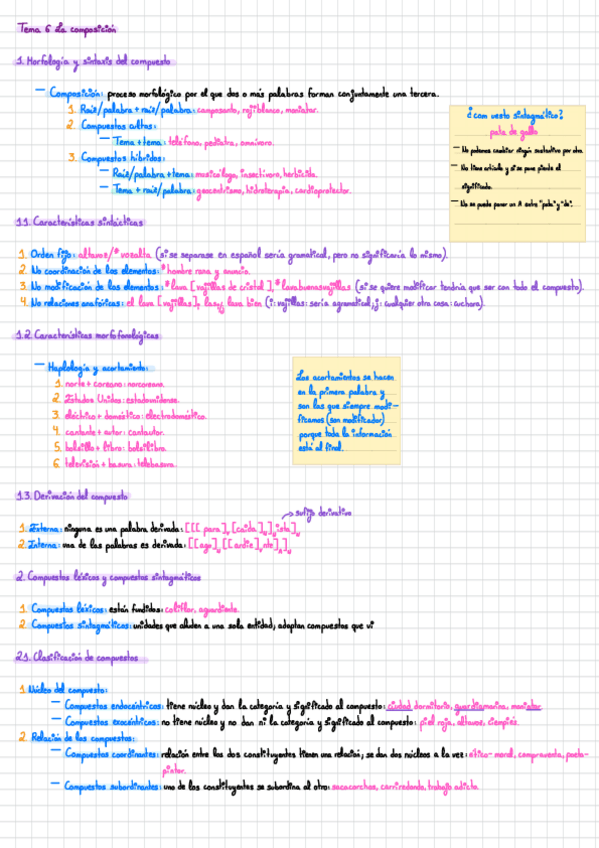 Tema 6 La composición
1. Morfología y sintaxis del compuesto
– Composición: proceso morfológico por el que dos o más palabras forman conjuntamente una tercera.
1. Raíz/palabra + raíz/palabra: camposanto, rojiblanco, maniatar.
2. Compuestos cultos:
– Tema + tema: teléfono, pediatra, omnívoro.
3. Compuestos híbridos:
– Raíz/palabra + tema: musicólogo, insectívoro, herbicida.
– Tema + raíz/palabra: geocentrismo, hidroterapia, cardioprotector.
¿com uesto sintagmático?
pata de gallo
– No podemos cambiar ningún sustantivo por otro.
– No tiene artículo y si se pone pierde el
significado.
– No se puede poner un A entre "pata" y "de".
1.1. Características sintácticas
1. Orden fijo: altavoz/* vozalta (si se separase en español sería gramatical, pero no significaría lo mismo).
2. No coordinación de los elementos: * hombre rana y anuncio.
3. No modificación de los elementos: * lava [vajillas de cristal], * lavabuenasvajillas (si se quiere modificar tendría que ser con todo el compuesto).
4. No relaciones anafóricas: el lava [vajillas]i lasj lava bien (i: vajillas: sería agramatical, j: cualquier otra cosa: cuchara).
1.2 Características morfofonológicas
– Haplología y acortamiento:
1. norte + coreano: norcoreano.
2. Estados Unidos: estadounidense.
3. eléctrico + doméstico: electrodoméstico.
4. cantante + autor: cantautor.
5. bolsillo + libro: bolsilibro.
6. televisión + basura: telebasura.
Los acortamientos se hacen
en la primera palabra y
son las que siempre modi-
ficamos (son modificador)
porque toda la información
está al final.
1.3. Derivación del compuesto
→ sufijo derivativo
1. Externa: ninguna es una palabra derivada: [[[ para]V [caída]N]N ista]N
2. Interna: una de las palabras es derivada: [[agua]N [[ardie]V nte]A]N
2. Compuestos léxicos y compuestos sintagmáticos
1. Compuestos léxicos: están fundidos: coliflor, aguardiente.
2. Compuestos sintagmáticos: unidades que aluden a una sola entidad; adoptan compuestos que vi
2.1. Clasificación de compuestos
1. Núcleo del compuesto:
– Compuestos endocéntricos: tiene núcleo y dan la categoría y significado al compuesto: ciudad dormitorio, guardiamarina, maniatar.
– Compuestos exocéntricos: no tiene núcleo y no dan ni la categoría y significado al compuesto: piel roja, altavoz, ciempiés.
2. Relación de los compuestos:
– Compuestos coordinantes: relación entre los dos constituyentes tienen una relación; se dan dos núcleos a la vez: ético-moral, compraventa, poeta-
pintor.
– Compuestos subordinantes: uno de los constituyentes se subordina al otro: sacacorchos, carirredondo, trabajo adicto.